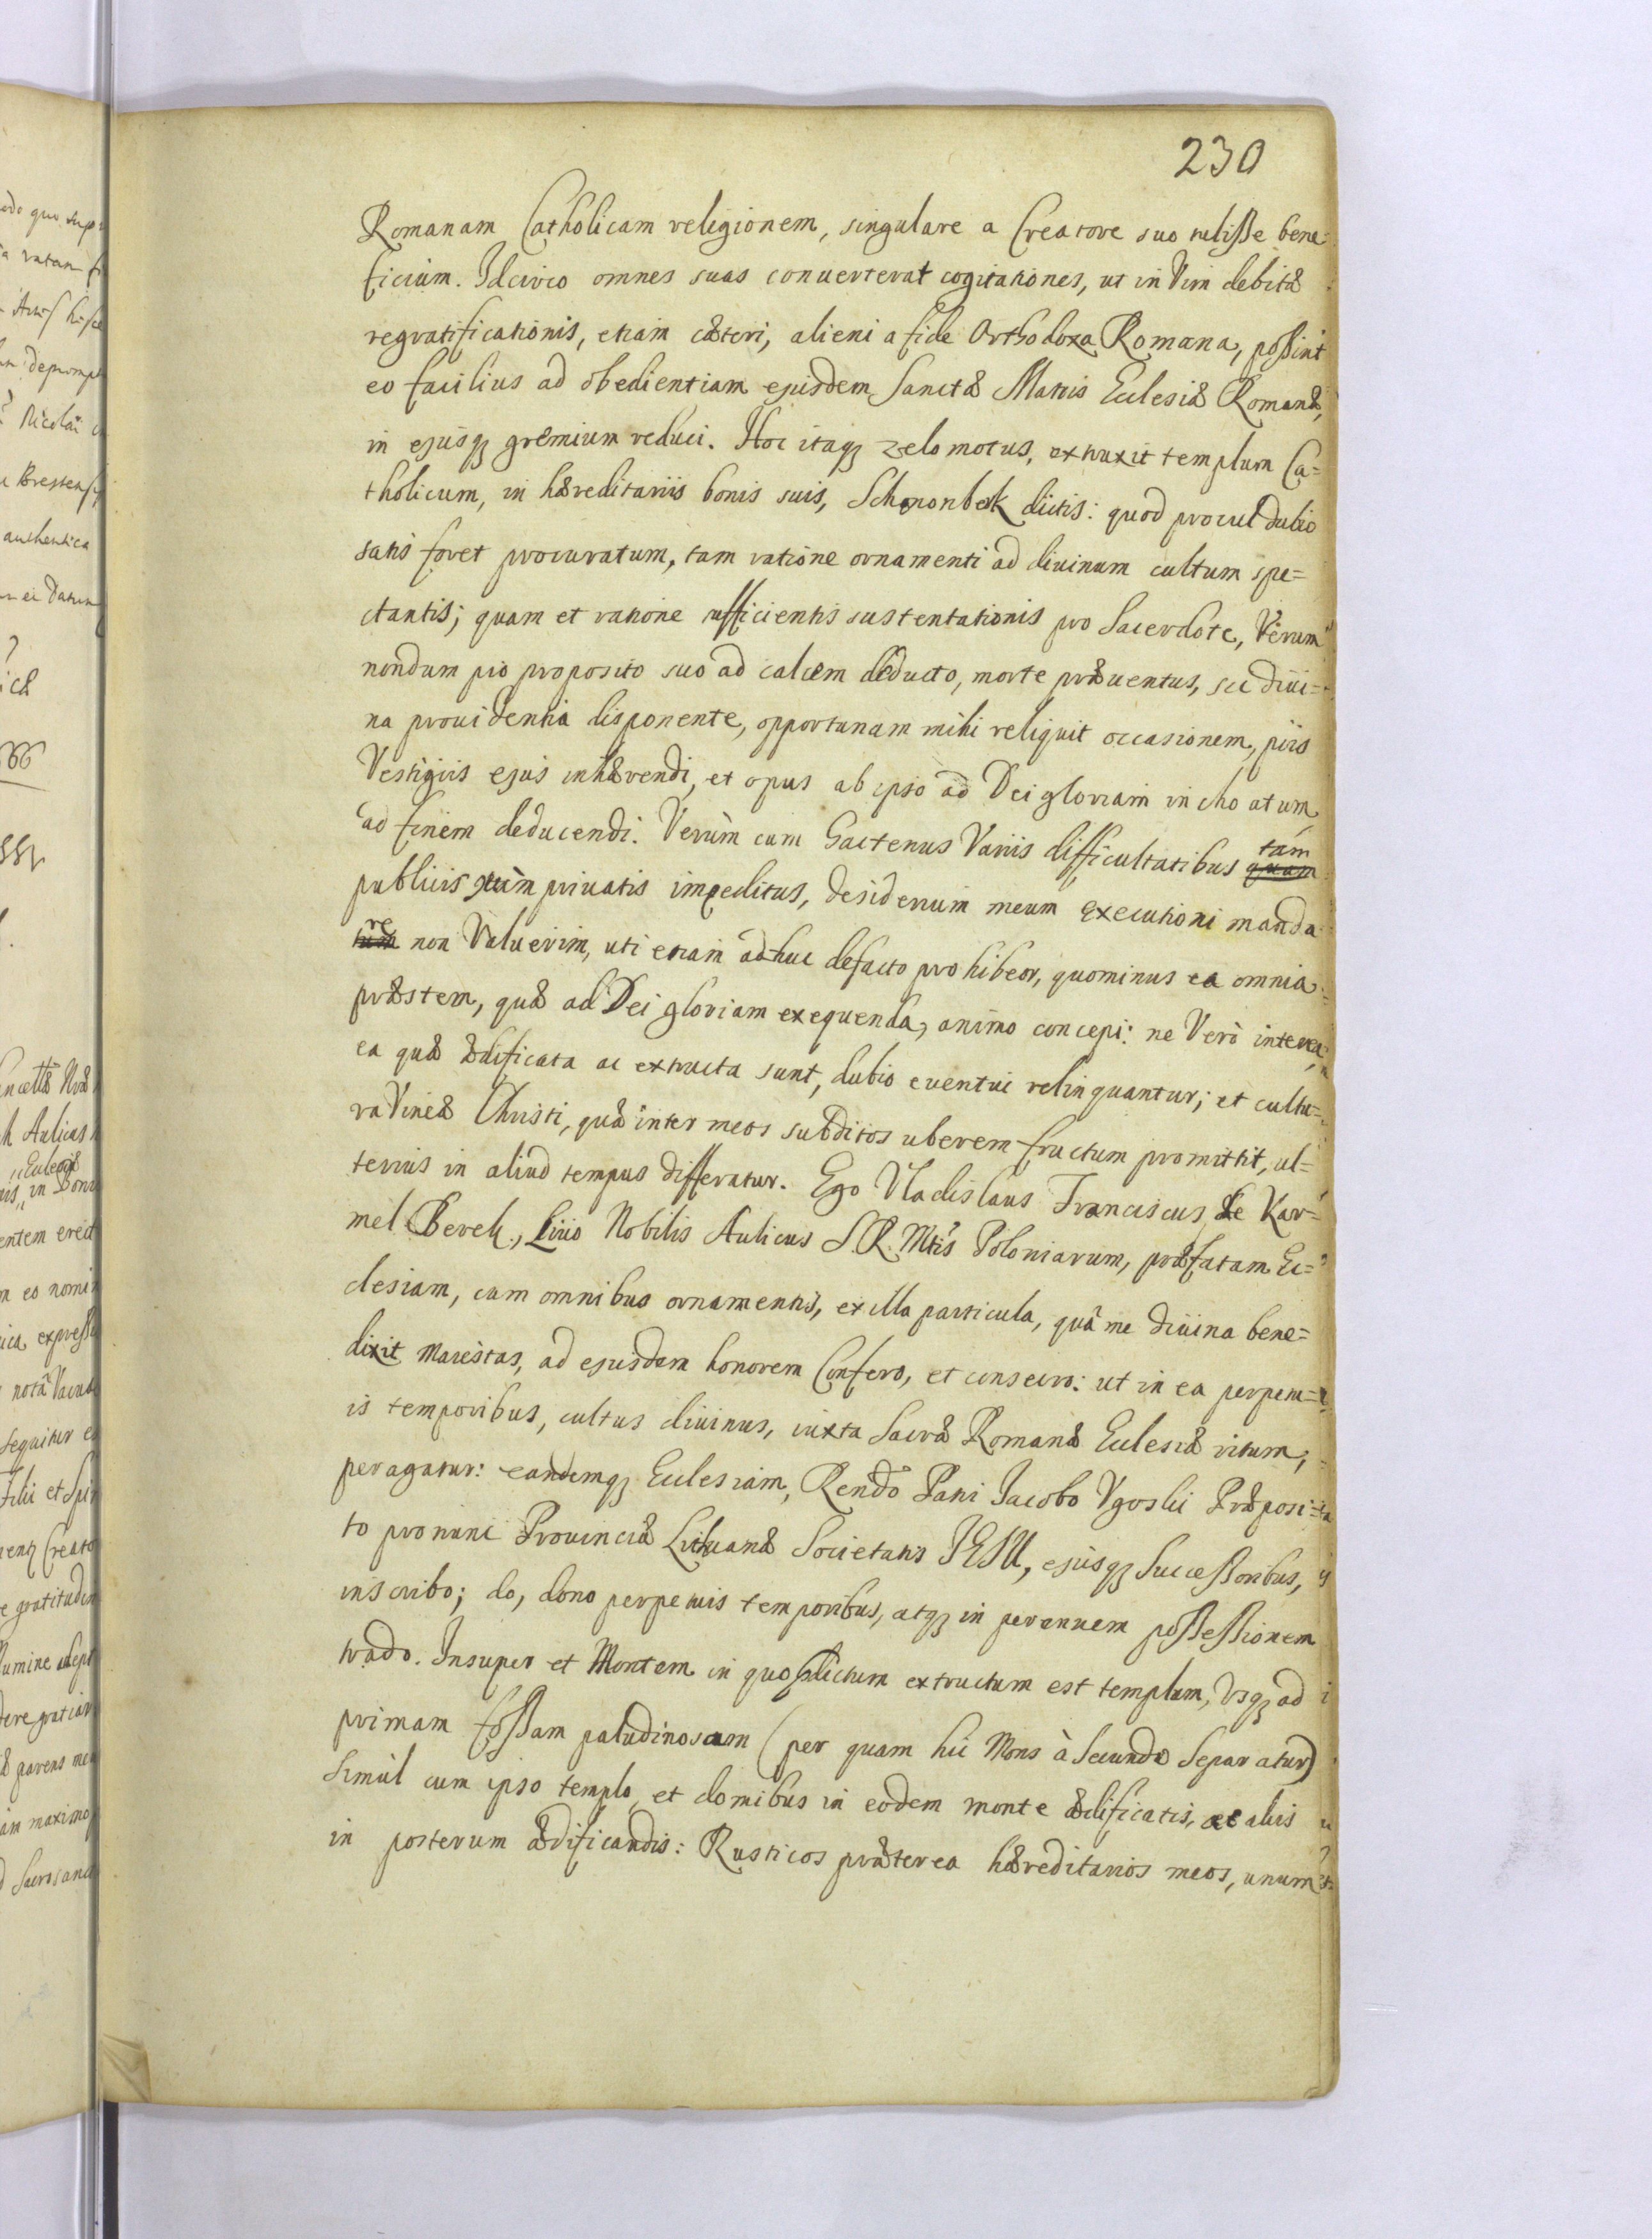 230
Romanam Catholicam religionem, singulare a Creatore suo tulisse bene=
ficium. Idcirco omnes suas conuerterat cogitationes, ut in Vim debitæ
regratificationis, etiam cæteri, alieni a fide Orthodoxa Romana, possint
eo facilius ad obedientiam ejusdem Sanctæ Matris Ecclesiæ Romanæ,
in ejusq3 gremium reduci. Hoc itaq3 zelo motus, extruxit templum Ca=
tholicum, in hæreditariis bonis suis, Schononbeck dictis: quod procul dubio
satis foret procuratum, tam ratione ornamenti ad diuinum cultum spe=
ctantis; quam et ratione sufficientis sustentationis pro Sacerdote, Verum
nondum pio proposito suo ad calcem deducto, morte præuentus, sic diui=
na prouidentia disponente, opportunam mihi reliquit occasionem, piis
Vestigiis ejus inhærendi, et opus ab ipso ad Dei gloriam inchoatum,
ad finem deducendi. Verùm cum hactenus Variis difficultatibus quam tam
publicis quàm priuatis impeditus, desiderium meum executioni manda
re non Valuerim, uti etiam adhuc defacto prohibeor, quominus ea omnia
præstem, quæ ad Dei gloriam exequenda, animo concepi: ne Verò interea,
ea quæ ædificata ac extructa sunt, dubio euentui relinquantur; et cultu=
ra Vineæ Christi, quæ inter meos subditos uberem fructum promittit, ul=
terius in aliud tempus differatur. Ego Vladislaus Franciscus de Kar=
mel Bereh., Liuo Nobilis Aulicus S. R. Mtis Poloniarum, præfatam Ec=
clesiam, cum omnibus ornamentis, ex illa particula, quâ me diuina bene=
dixit Maiestas, ad ejusdem honorem Confero, et consecro: ut in ea perpetu=
is temporibus, cultus diuinus, iuxta Sacræ Romanæ Ecclesiæ ritum,
peragatur: eandemq3 Ecclesiam, Rendo Patri Iacobo Vgoski Præposi=
to pro nunc Prouinciæ Lithuanæ Societatis IESU, ejusq3 Successoribus,
inscribo; do, dono perpetuis temporibus, atq3 in perennem possessionem
trado. Insuper et Montem in quo dictum extructum est templum, Vsq3 ad
primam fossam paludinosam (per quam hic Mons à Secundo Separatur)
Simùl cum ipso templo, et domibus in eodem monte ædificatis, ac aliis
in posterum ædificandis: Rusticos præterea hæreditarios meos, unum